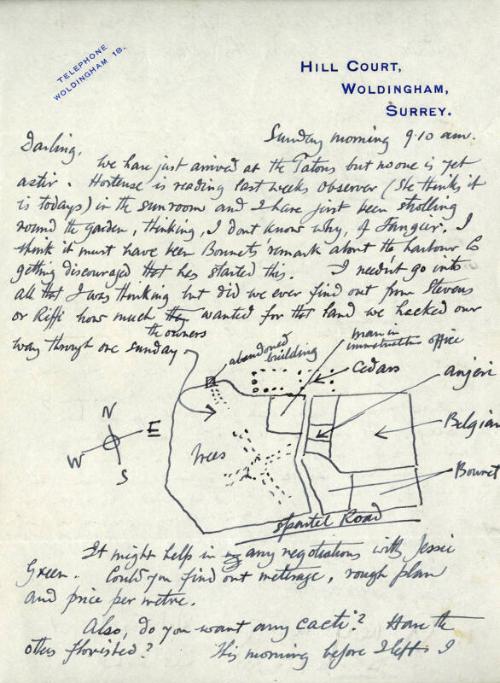 TELEPHONE
WOLDINGHAM 18.
HILL COURT,
WOLDINGHAM,
SURREY.
Sunday morning 9.10 a.m.
Darling,
We have just arrived at the Tatons but no one is yet
astir. Hortense is reading last weeks Observer (She thinks it
is todays) in the sunroom and I have just been strolling
round the garden, thinking, I dont know why, of Tangier. I
think it must have been Bonnets remark about the harbour Co
getting discouraged that has started this. I needn't go into
all that I was thinking but did we ever find out from Stevens
or Riffi how much they wanted for that land we hacked our
the owners
way through one Sunday
abandoned
building
man in
immigration office
Cedars
anjeri
Belgian
Bonnet
N
E
W
S
Trees
Spartel Road
It might help in my any negotiations with Jessie
Green. Could you find out metrage, rough plan
and price per metre.
Also, do you want any cacti? Have the
others florished? This morning before I left I